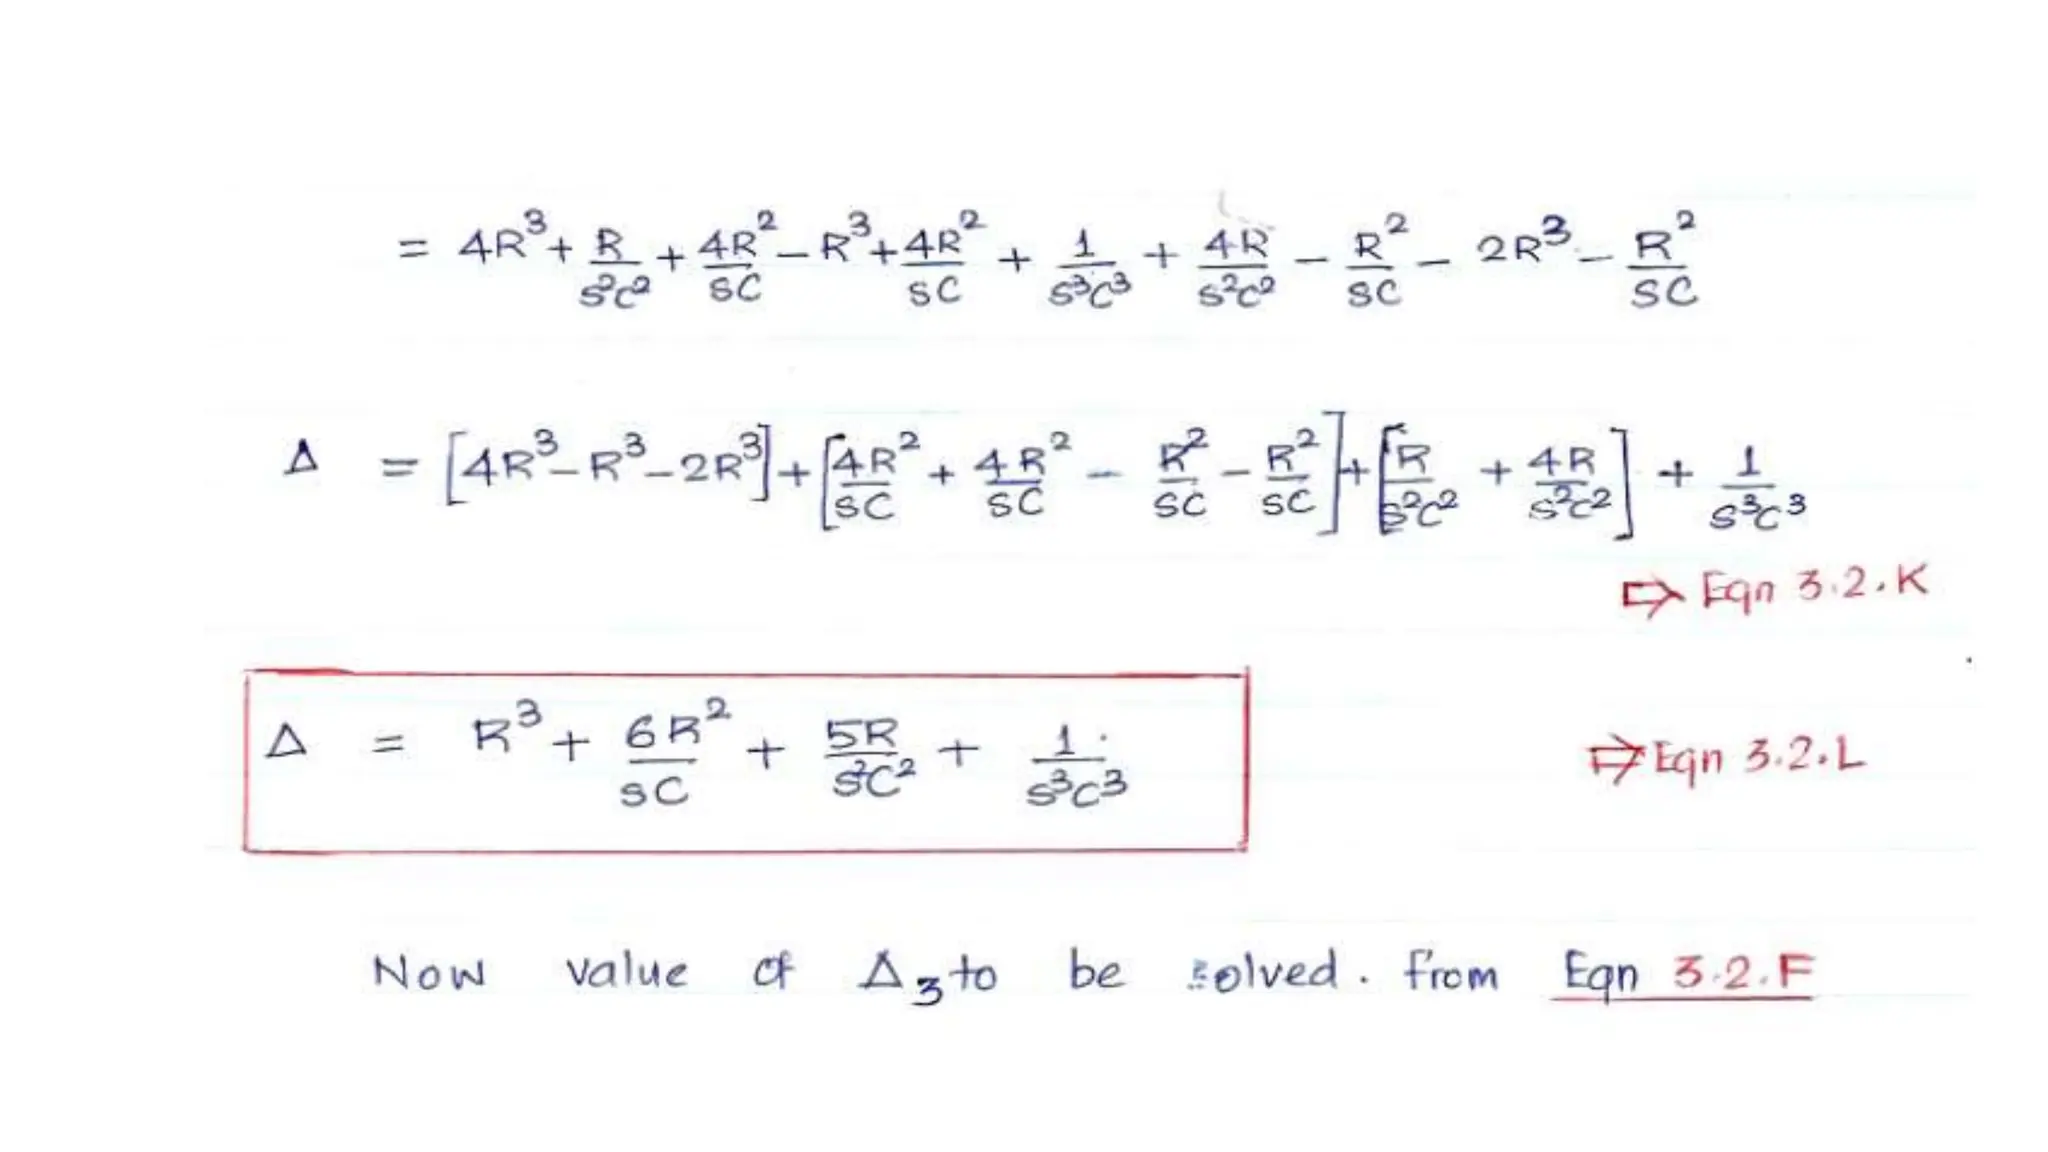 = 4R³ + R/s²c² + 4R²/SC - R³ + 4R²/SC + 1/s³c³ + 4R/s²c² - R²/SC - 2R³ - R²/SC
Δ = [4R³ - R³ - 2R³] + [4R²/SC + 4R²/SC - R²/SC - R²/SC] + [R/s²c² + 4R/s²c²] + 1/s³c³
⇨ Eqn 3.2.K
Δ = R³ + 6R²/SC + 5R/s²c² + 1/s³c³ ⇨ Eqn 3.2.L
Now value of Δ₃ to be solved. from Eqn 3.2.F